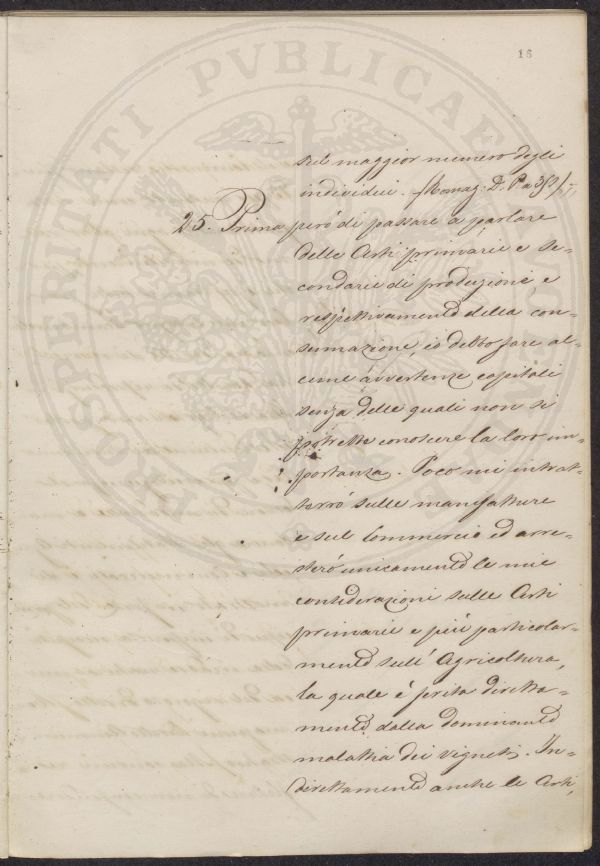 18
PROSPERITATI PVBLICAE
sul maggior numero degli
individui.
25. Prima peró di passare a parlare
delle Arti primarie e se-
condarie di produzione, e
respettivamente della con-
sumazione, io debbo fare al-
cune avvertenze capitali
senza delle quali non si
potrebbe conoscere la loro im-
portanza. Poco mi intrat-
terró sulle manifatture
e sul Commercio ed arre-
steró unicamente le mie
considerazioni sulle Arti
primarie e piú particolar-
mente sull' Agricoltura,
la quale é ferita diretta-
mente dalla dominante
malattia dei vigneti. In-
direttamente anche le Arti,